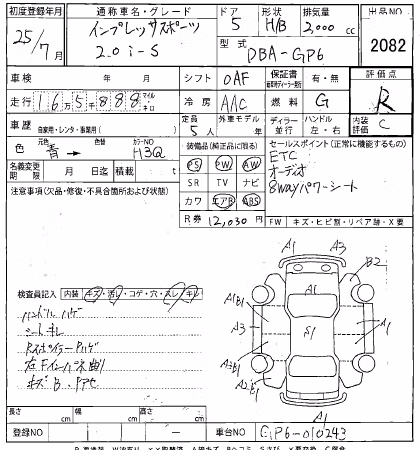 初度登録年月 通称車名・グレード ドア 形状 排気量 出品NO
25/7月 インプレッサスポーツ 5 H/B 2,000cc
2.0i-S 型式 DBA-GP6 2082
車検 年 月 シフト DAF 保証書 有・無 評価点
走行 16万5千888 マイル キロ 冷房 AAC 燃料 G R
車歴 自家用・レンタ・事業用( ) 定員 5人 外車モデル 年 ディーラー 並行 ハンドル 左・右 内装評価 C
色 青→ 元色 色替 カラーNO H3Q 装備品(純正品に限る) セールスポイント(正常に機能するもの)
PS PW AW ETC
名義変更期限 月 日迄 積載 t SR TV ナビ オーディオ
注意事項(欠品・修復・不具合箇所および状態) カワ エアB ABS 8wayパワーシート
R券 12,030円 FW キズ・ヒビ割・リペア跡・X要
A1 A3
A1 B2
検査員記入 内装 キズ・汚レ・コゲ・穴・スレ・キレ
ハンドルハゲ A1B1
シートキレ A3 S1 A1
RスポイラーPハゲ
左右Fインパネ曲り A3B1 A1
キズB・アセ A2B1 S1
長さ cm 幅 cm 高さ cm
登録NO 車台NO GP6-010243